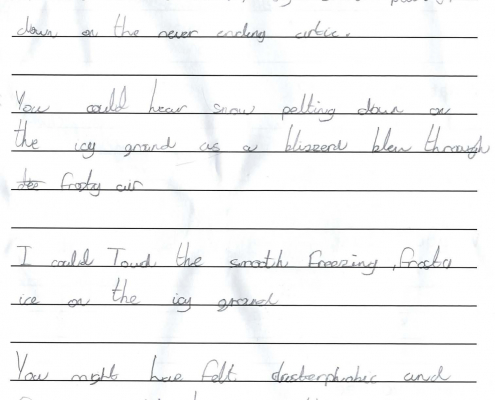 down on the never ending artic.
You could hear snow pelting down on
the icy ground as a blizzerd blew through
the frosty air
I could Touch the smooth Freezing, frosty
ice on the icy ground
You might have felt clasterphobic and